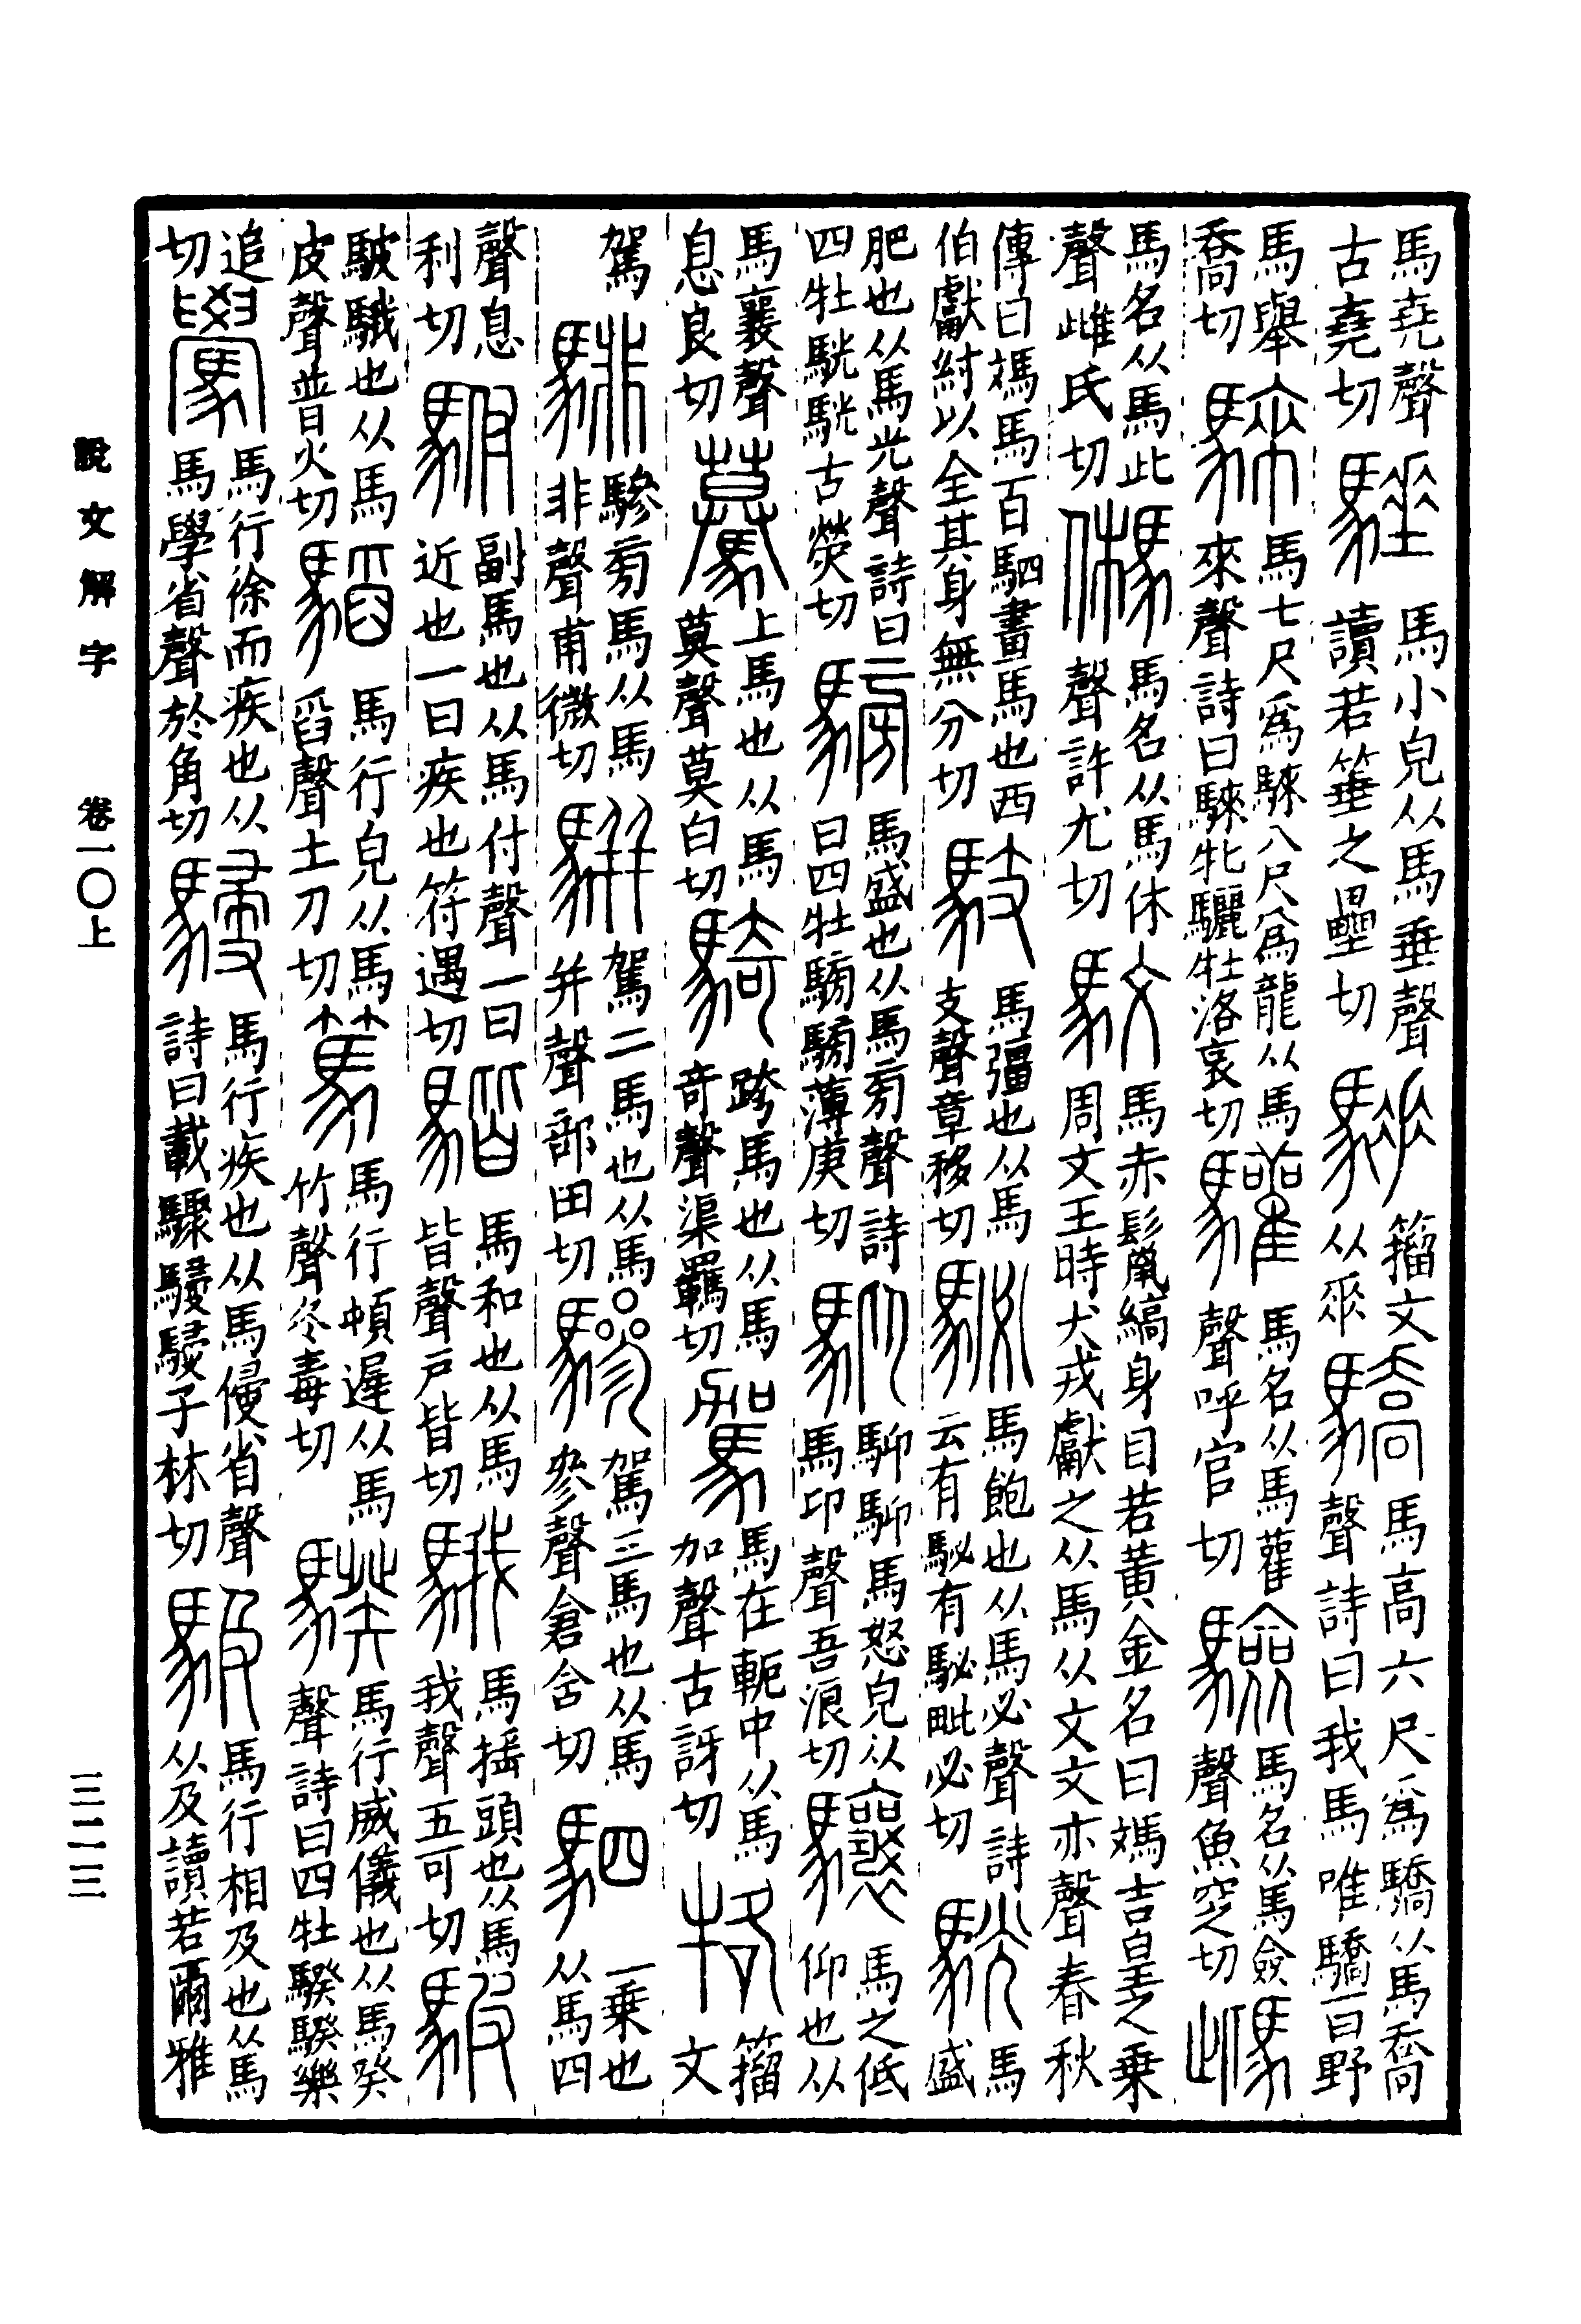 馬堯聲古堯切𩣫馬小皃从馬垂聲讀若箠之壘切籀文从𠂹驕馬高六尺爲驕从馬喬聲詩曰我馬唯驕一曰野
馬舉喬切騋馬七尺爲騋八尺爲龍从馬來聲詩曰騋牝驪牡洛哀切驩馬名从馬雚聲呼官切驗馬名从馬僉聲魚窆切
馬名从馬此聲雌氏切馬名从馬休聲許尤切馼馬赤鬣縞身目若黃金名曰媽吉皇之乗周文王時犬戎獻之从馬从文文亦聲春秋
傳曰媽馬百駟畫馬也西伯獻紂以全其身無分切馬彊也从馬支聲章移切駜馬飽也从馬必聲詩云有駜有駜毗必切駫馬盛
肥也从馬光聲詩曰四牡駫駫古熒切騯馬盛也从馬㫄聲詩曰四牡騯騯薄庚切䭹䭹䭹馬怒皃从馬卬聲吾浪切驤馬之低仰也从
馬襄聲息良切驀上馬也从馬莫聲莫白切騎跨馬也从馬奇聲渠羈切駕馬在軛中从馬加聲古訝切籀文
駕騑驂㫄馬从馬非聲甫微切駢駕二馬也从馬并聲部田切驂駕三馬也从馬參聲倉含切駟一乗也从馬四
聲息利切駙副馬也从馬付聲一曰近也一曰疾也符遇切馬和也从馬皆聲戶皆切騀馬搖頭也从馬我聲五可切駊
駊騀也从馬皮聲普火切馬行皃从馬舀聲土刀切篤馬行頓遲从馬竹聲冬毒切騤馬行威儀也从馬癸聲詩曰四牡騤騤樂
追切馬行徐而疾也从馬學省聲於角切駸馬行疾也从馬侵省聲詩曰載驟駸駸子林切馺馬行相及也从馬从及讀若爾雅
說文解字 卷一〇上
三二三